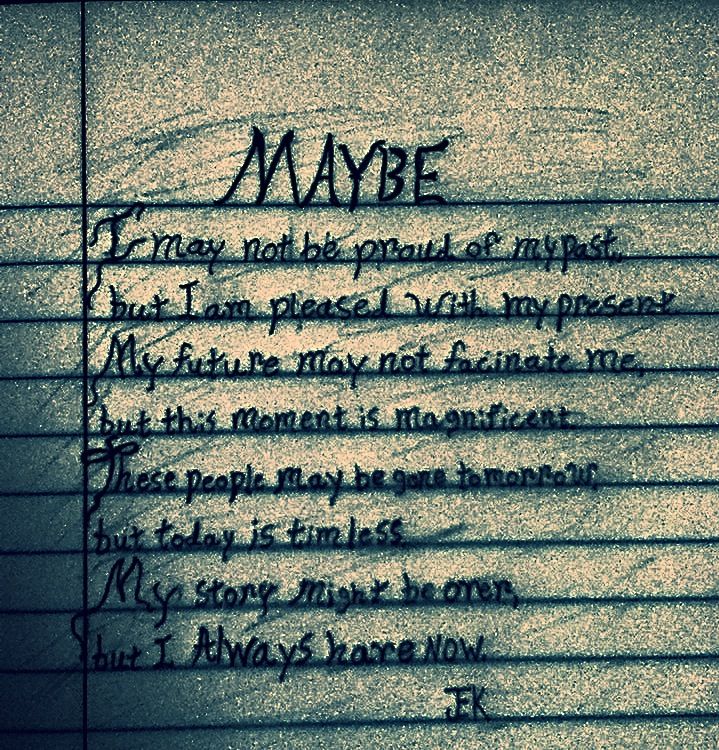 MAYBE
I may not be proud of my past,
but I am pleased with my present
My future may not facinate me,
but this moment is magnificent.
These people may be gone tomorrow,
but today is timless
My story might be over,
but I Always have NOW.
JEK